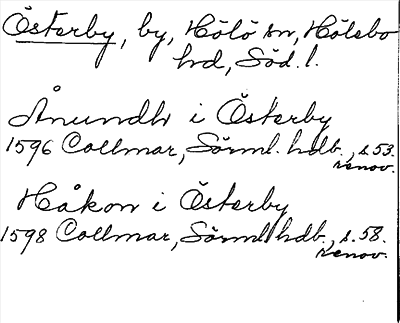 Österby, by, Hölö sn, Hölebo
hd, Söd. l.
Ånundh i Österby
1596 Collmar, Sörml. hdb., s. 53.
renov.
Håkon i Österby
1598 Collmar, Sörml hdb., s. 58.
renov.